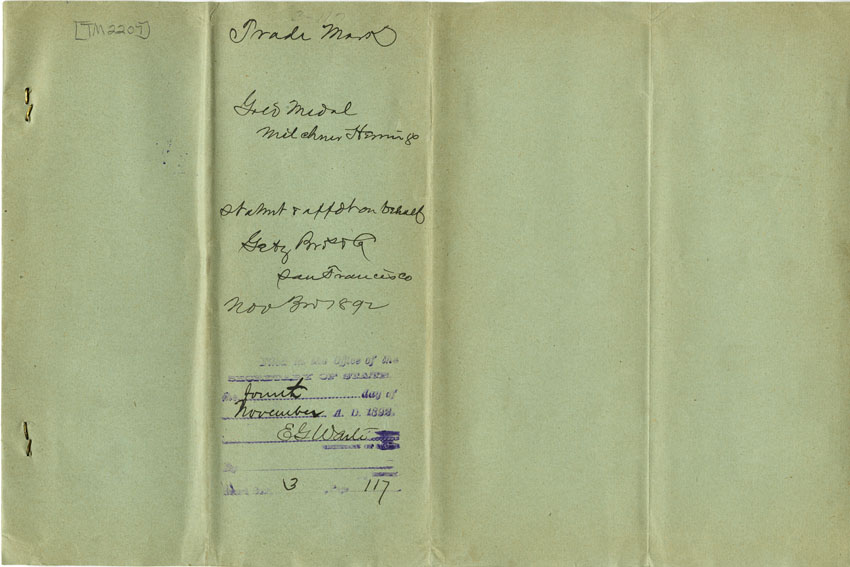 [TM2207]
Trade Mark
Gold Medal
Milchner Herrings
Statmt & affdt on behalf
Getz Bros & Co
San Francisco
Nov 3rd 1892
Filed in the Office of the
SECRETARY OF STATE
the fourth day of
November A. D. 1892.
E G Waite
SECRETARY OF STATE
By
3 Page 117